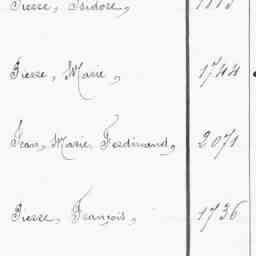 Pierre, Isidore,
Pierre, Marie, 1744
Jean, Marie, Ferdinand, 2071
Pierre, François, 1736